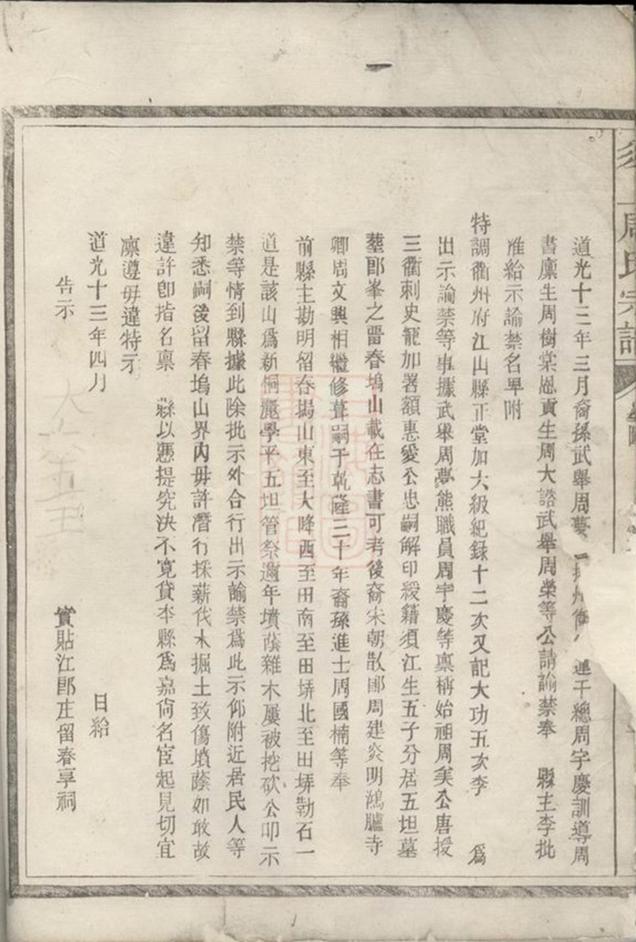 周氏宗譜
道光十三年三月裔孫武舉周夢 千總周宇慶訓導周
書廩生周樹棠恩貢生周大諮武舉周榮等公請諭禁奉 縣主李批
准給示諭禁名畢附
特調衢州府江山縣正堂加六級紀錄十二次又記大功五次李 為
出示諭禁等事據武舉周夢熊職員周宇慶等稟稱始祖周美公唐授
三衢刺史寵加署額惠愛公忠嗣解印綬籍須江生五子分居五坦墓
塟郎峯之畱春塢山載在志書可考後裔宋朝散郎周建炎明鴻臚寺
卿周文興相繼修葺嗣于乾隆三十年裔孫進士周國楠等奉
前縣主勘明留春塢山東至大降西至田南至田塝北至田塝勒石一
道是該山為新恫麗學平五坦管祭邇年墳蔭雜木屢被挖砍公叩示
禁等情到縣據此除批示外合行出示諭禁為此示仰附近居民人等
知悉嗣後留春塢山界內毋許潛行採薪伐木掘土致傷墳蔭如敢故
違許卽指名稟 縣以憑提究決不寬貸本縣為嘉尚名宦起見切宜
凜遵毋違特示
道光十三年四月 日給
告示 實貼江郎庄留春享祠